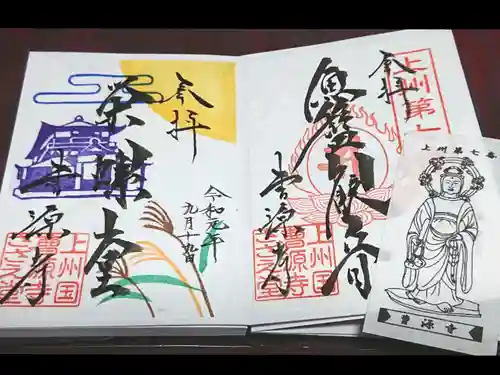 奉拝
栄螺堂
曹源寺
令和元年
九月
上州国
曹源寺
さざえ堂
奉拝
上州第七
魚籃観世音
曹源寺
上州国
曹源寺
上州第七番
曹源寺